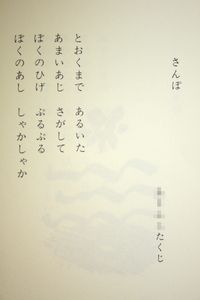 さんぽ
たくじ
とおくまで　あるいた
あまいあじ　さがして
ぼくのひげ　ぷるぷる
ぼくのあし　しゃかしゃか